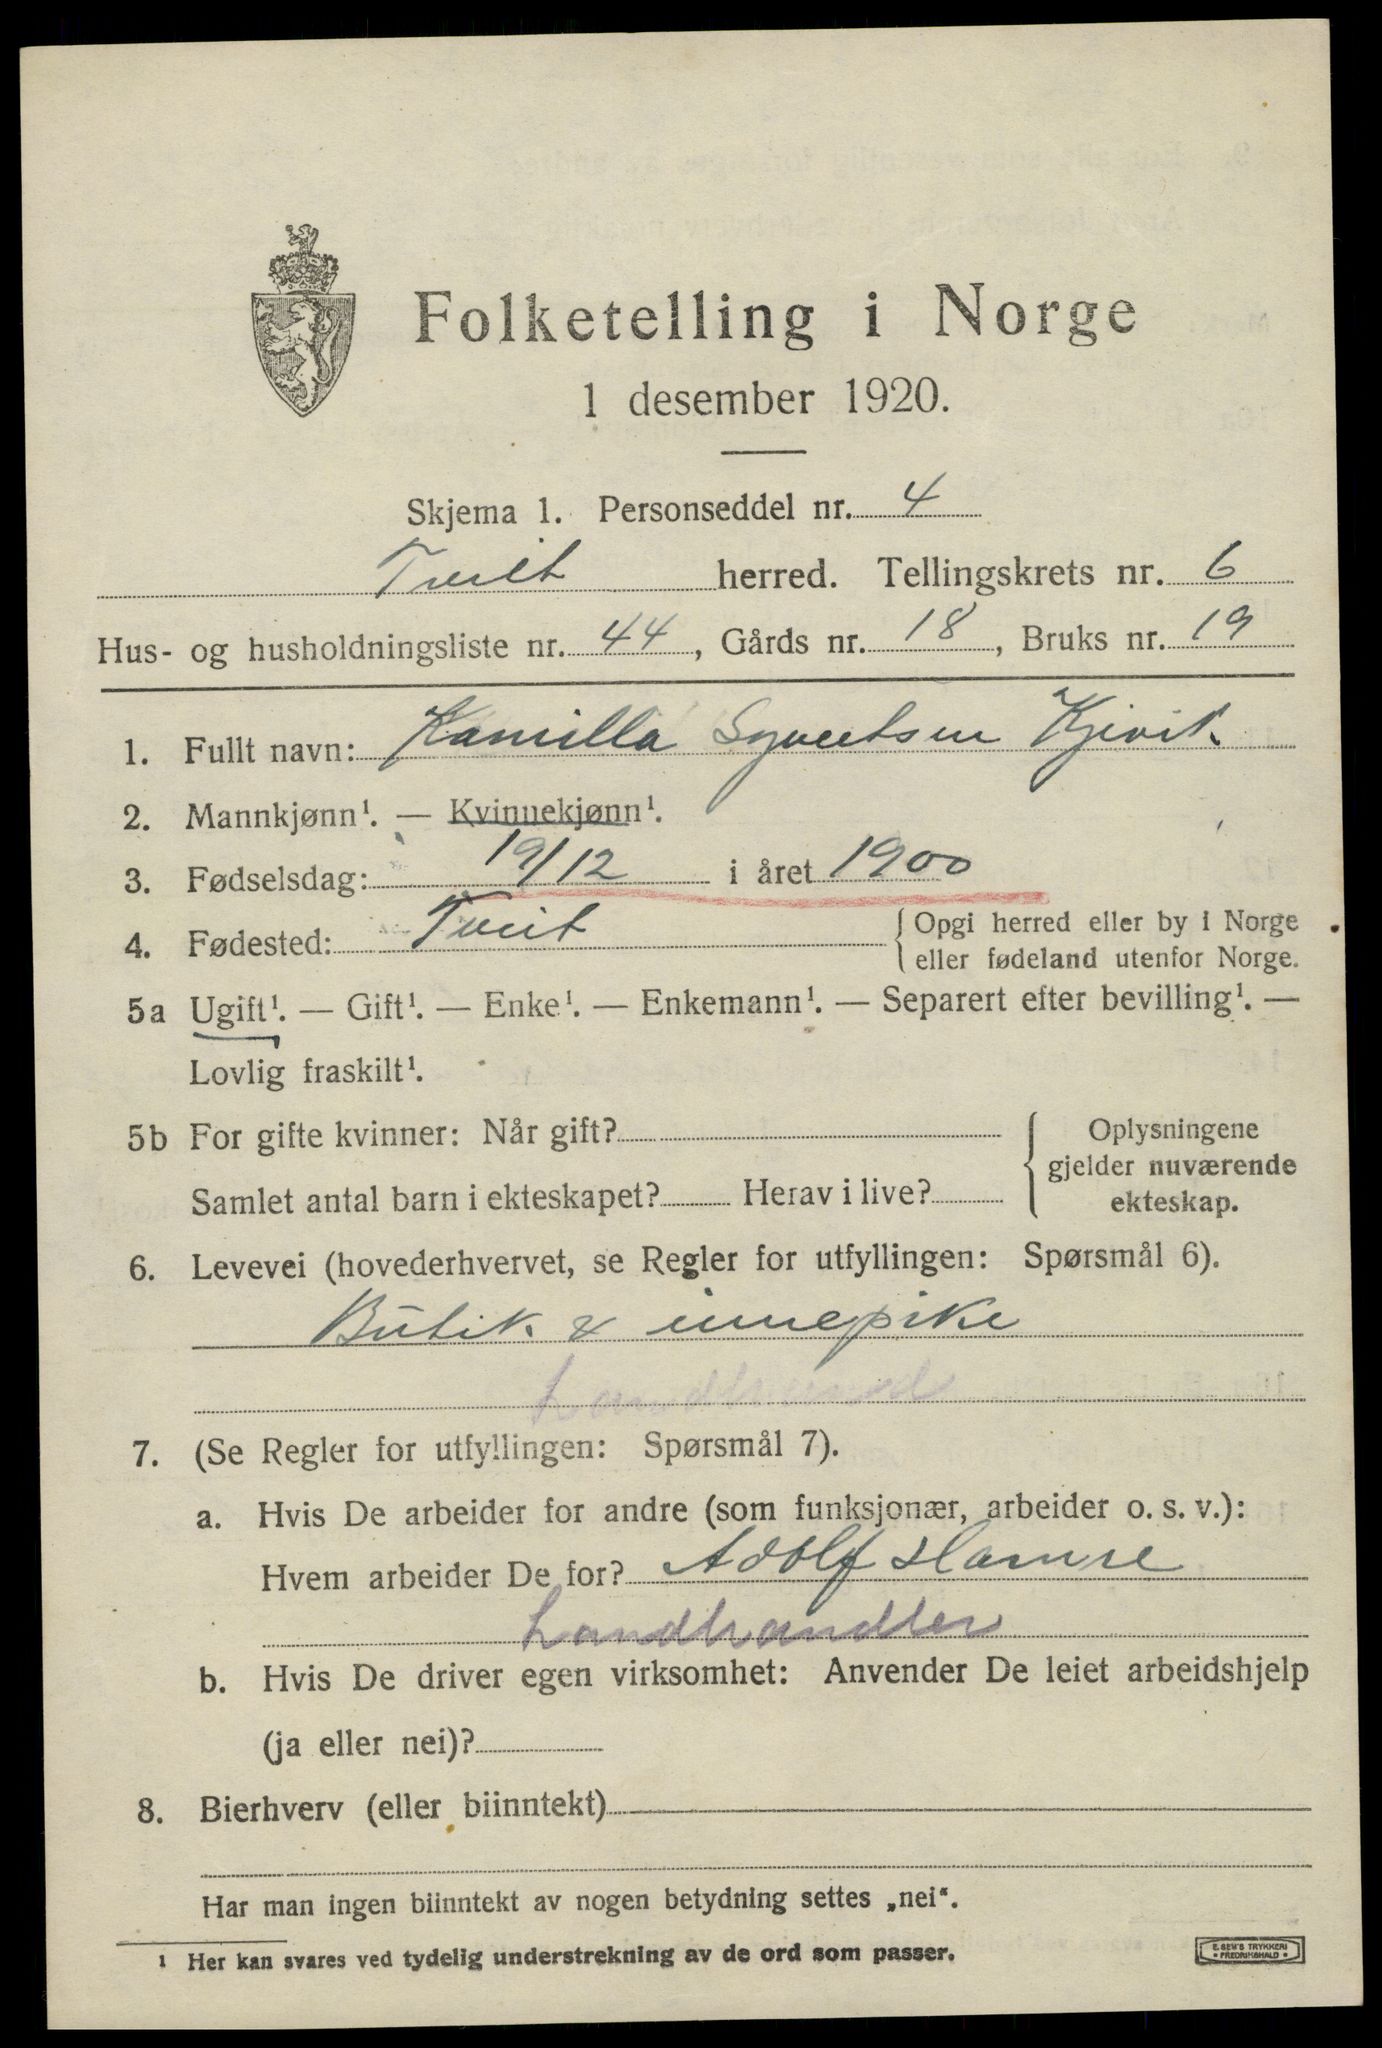 Folketelling i Norge
1 desember 1920.
Skjema 1. Personseddel nr. 4
Tveit herred. Tellingskrets nr. 6
Hus- og husholdningsliste nr. 44, Gårds nr. 18, Bruks nr. 19
1. Fullt navn: Kamilla Syvertsen Kjevik.
2. Mannkjønn¹. — Kvinnekjønn¹.
3. Fødselsdag: 19/12 i året 1900
4. Fødested: Tveit { Opgi herred eller by i Norge
eller fødeland utenfor Norge.
5a Ugift¹. — Gift¹. — Enke¹. — Enkemann¹. — Separert efter bevilling¹. —
Lovlig fraskilt¹.
5b For gifte kvinner: Når gift? { Oplysningene
gjelder nuværende
Samlet antal barn i ekteskapet? Herav i live? ekteskap.
6. Levevei (hovederhvervet, se Regler for utfyllingen: Spørsmål 6).
Butik & innepike
Landhand
7. (Se Regler for utfyllingen: Spørsmål 7).
a. Hvis De arbeider for andre (som funksjonær, arbeider o. s. v.):
Hvem arbeider De for? Adolf Hamre
Landhandler
b. Hvis De driver egen virksomhet: Anvender De leiet arbeidshjelp
(ja eller nei)?
8. Bierhverv (eller biinntekt)
Har man ingen biinntekt av nogen betydning settes „nei“.
¹ Her kan svares ved tydelig understrekning av de ord som passer.
E. SEM'S TRYKKERI
FREDRIKSHALD